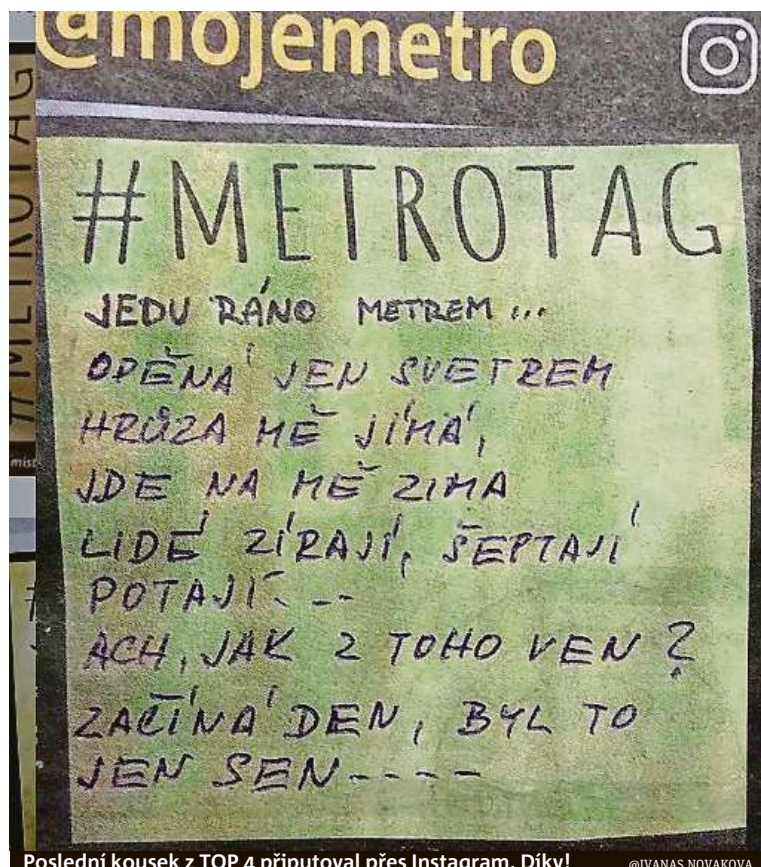 @mojemetro
#METROTAG
JEDU RÁNO METREM...
OPĚNÁ JEN SVETREM
HRŮZA MĚ JÍMÁ,
JDE NA MĚ ZIMA
LIDÉ ZÍRAJÍ, ŠEPTAJÍ
POTAJÍ---
ACH, JAK Z TOHO VEN?
ZAČÍNÁ DEN, BYL TO
JEN SEN----
Poslední kousek z TOP 4 připutoval přes Instagram. Díky!
@IVANAS.NOVAKOVA